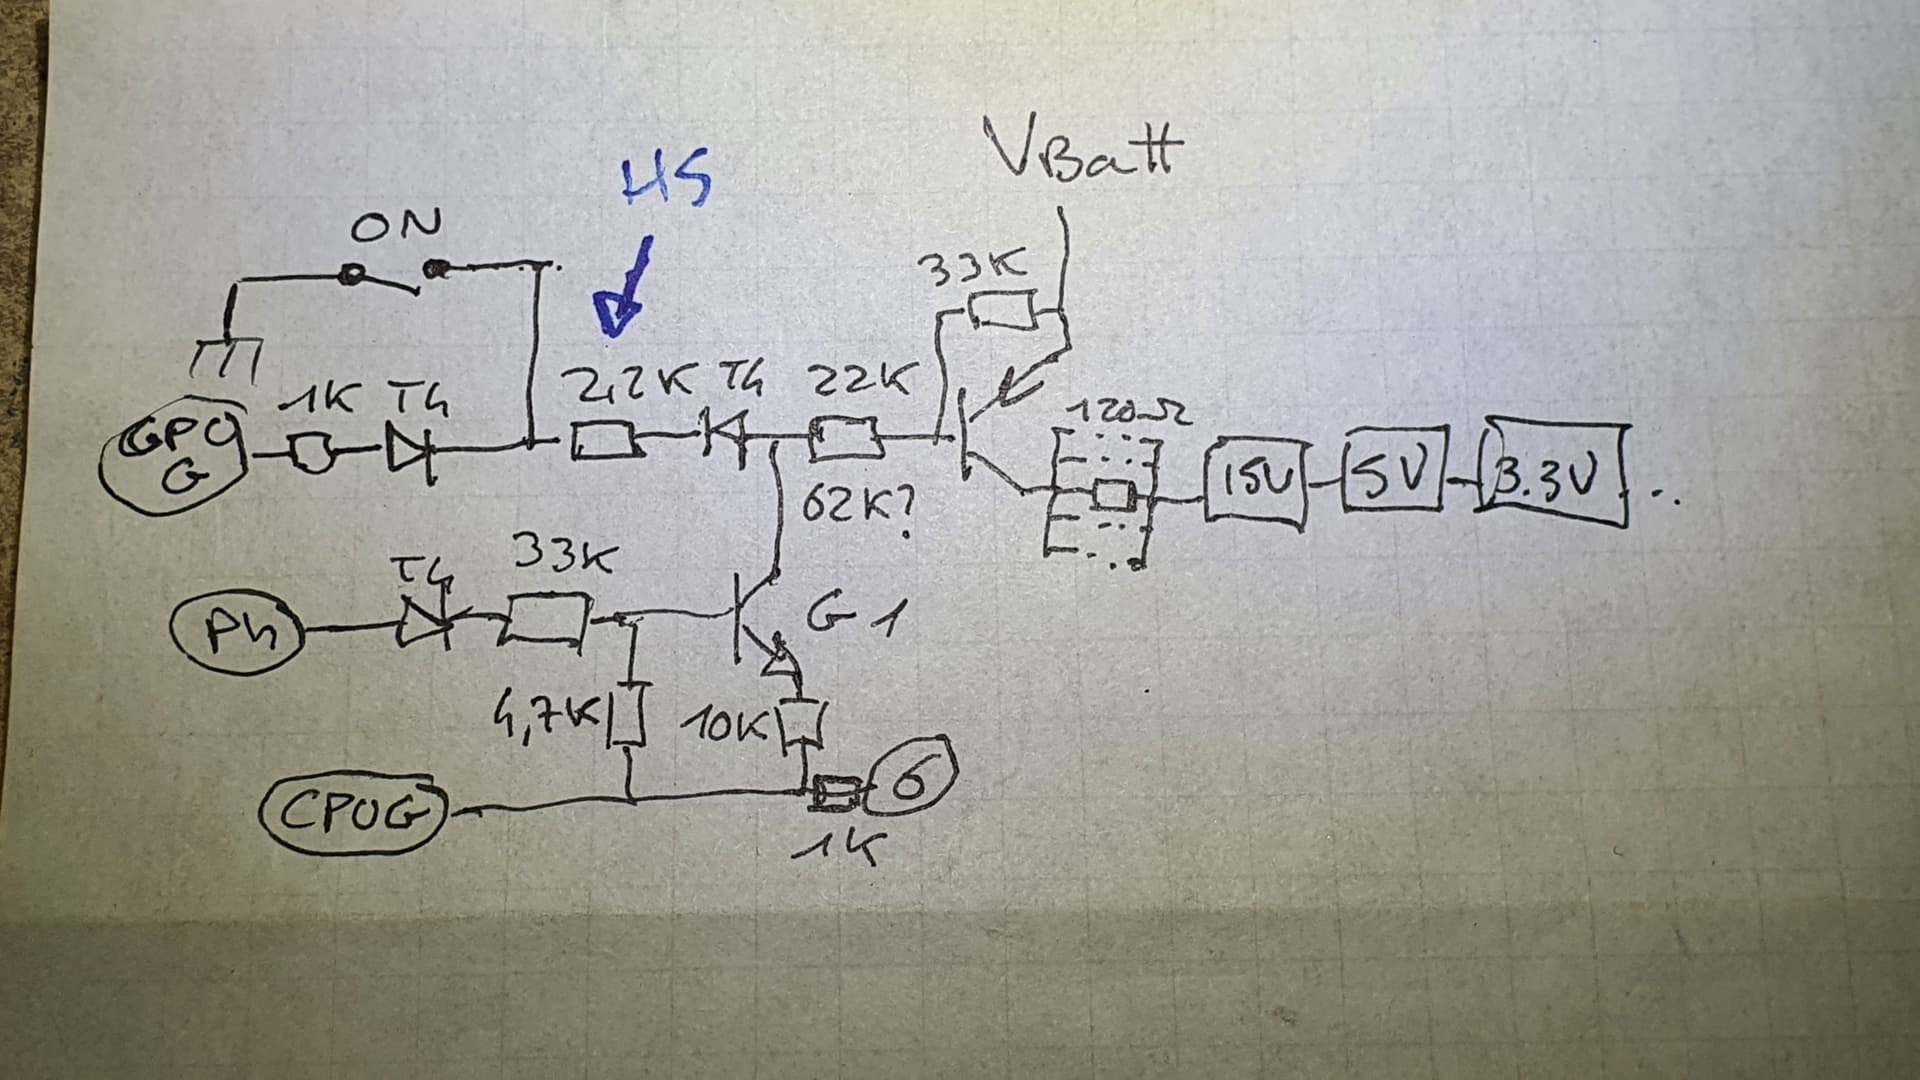 HS
VBatt
ON
33K
1K T4
2,2K T4 22K
120Ω
15V
5V
3.3V ...
62K?
T4
33K
P4
G1
4,7K
10K
6
1K